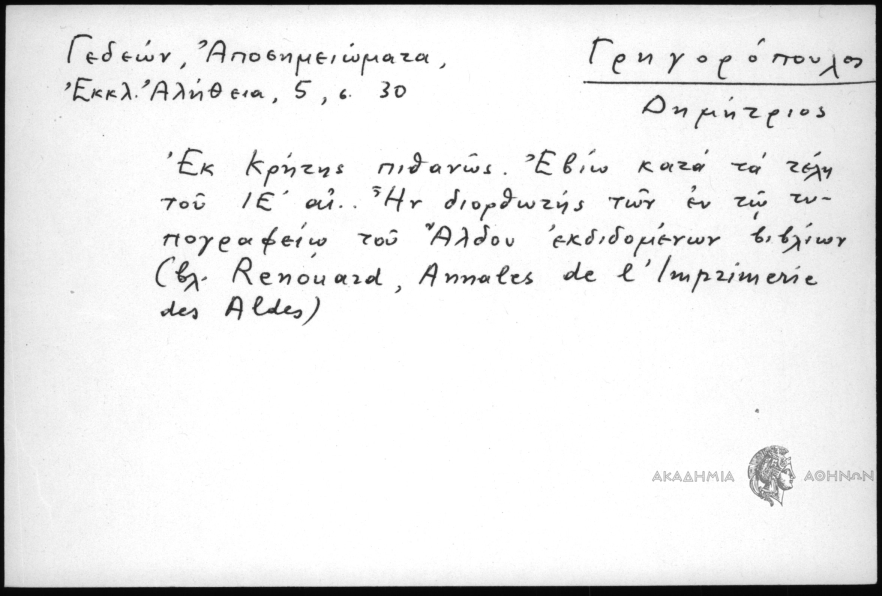 Γεδεών, Ἀποσημειώματα,
Ἐκκλ. Ἀλήθεια, 5, σ. 30
Γρηγορόπουλος
Δημήτριος
Ἐκ Κρήτης πιθανῶς. Ἐβίω κατά τά τέλη
τοῦ ΙΕ΄ αἰ.. Ἦν διορθωτής τῶν ἐν τῷ τυ-
πογραφείῳ τοῦ Ἄλδου ἐκδιδομένων βιβλίων
(βλ. Renouard, Annales de l'Imprimerie
des Aldes)
ΑΚΑΔΗΜΙΑ ΑΘΗΝΩΝ